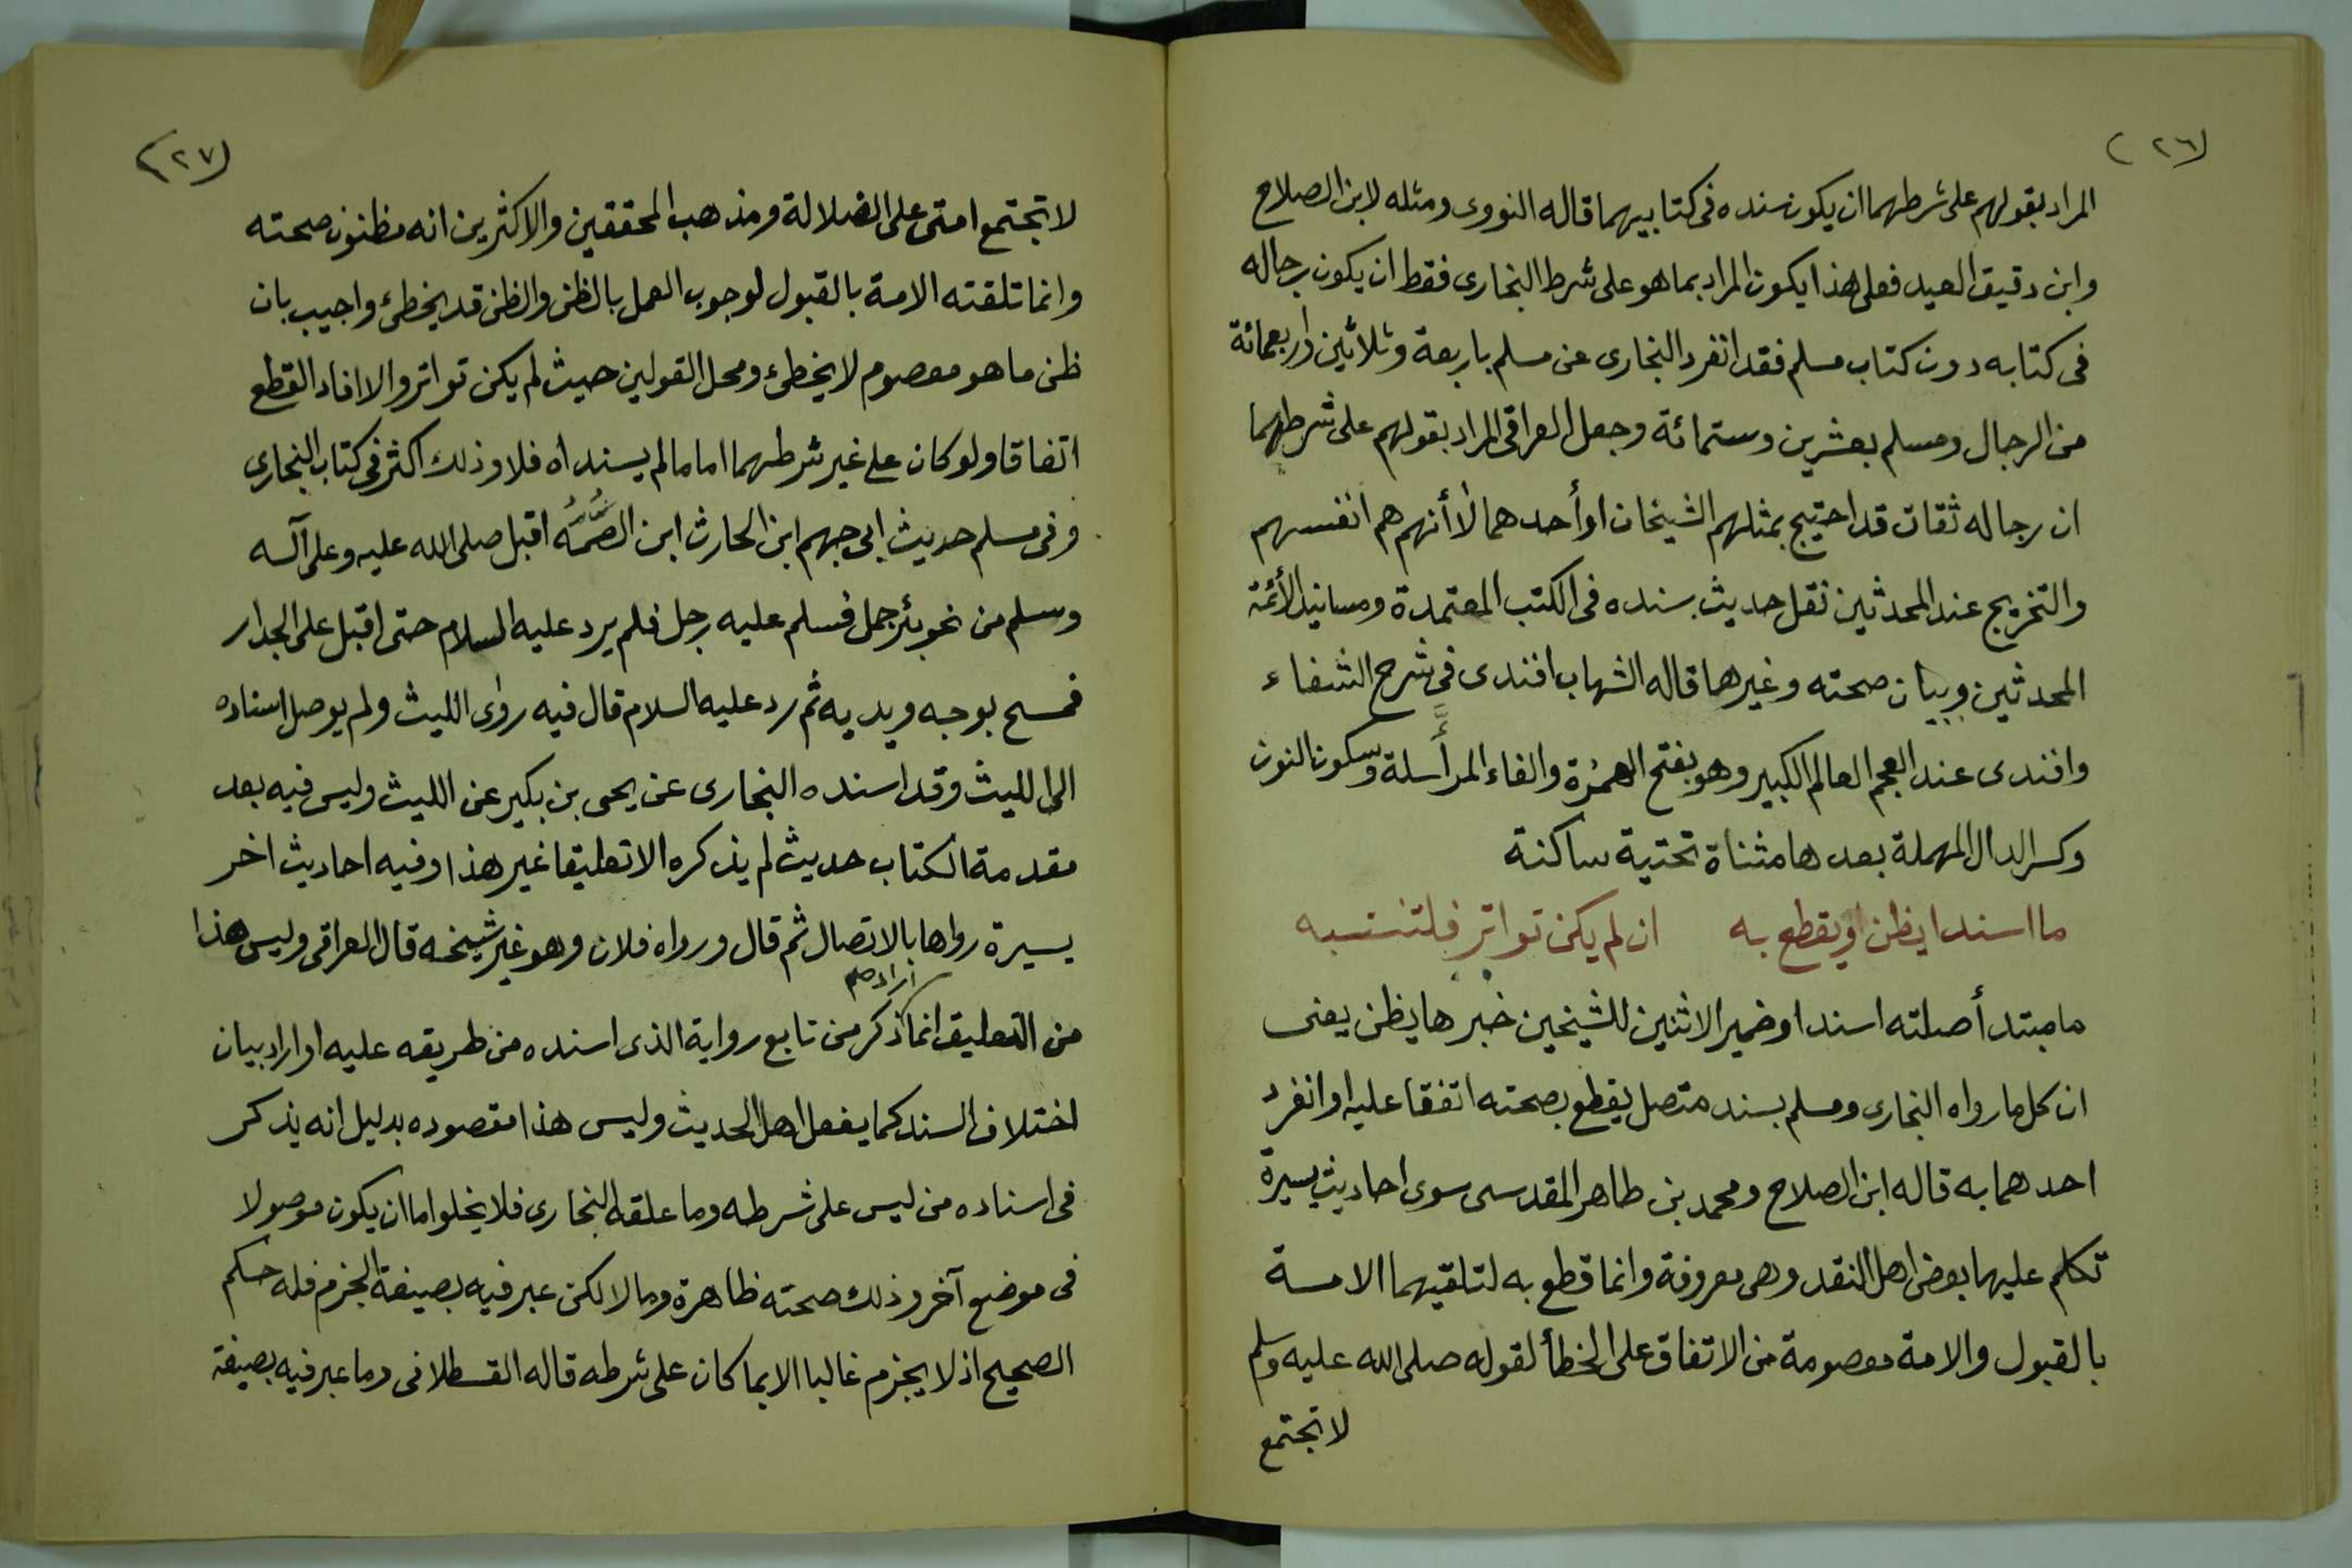 (٢٦)
المراد بقولهم على شرطهما ان يكون سنده فى كتابيهما قاله النووى ومثله لابن الصلاح
وابن دقيق العيد فعلى هذا يكون المراد بما هو على شرط البخارى فقط ان يكون رجاله
فى كتابه دون كتاب مسلم فقد انفرد البخارى عن مسلم باربعة وثلاثين واربعمائة
من الرجال ومسلم بعشرين وستمائة وجعل العراقى المراد بقولهم على شرطهما
ان رجاله ثقات قد احتيج بمثلهم الشيخان او أحدهما لا أنهم هم انفسهم
والتخريج عند المحدثين نقل حديث بسنده فى الكتب المعتمدة ومسانيد الأئمة
المحدثين وبيان صحته وغيرها قاله الشهاب افندى فى شرح الشفاء
وافندى عند العجم العالم الكبير وهو بفتح الهمزة والفاء المرأسلة وسكون النون
وكسر الدال المهملة بعدها مثناة تحتية ساكنة
ما اسندا يظن او يقطع به ان لم يكن تواتر فلتنتبه
ما مبتدأ صلته اسندا وضمير الاثنين للشيخين خبرها يظن يعنى
ان كل ما رواه البخارى ومسلم بسند متصل يقطع بصحته اتفقا عليه او انفرد
احدهما به قاله ابن الصلاح ومحمد بن طاهر المقدسى سوى احاديث يسيرة
تكلم عليها بعض اهل النقد وهى معروفة وانما قطع به لتلقيهما الامة
بالقبول والامة معصومة من الاتفاق على الخطأ لقوله صلى الله عليه وسلم
لا تجتمع
(٢٧)
لا تجتمع امتى على الضلالة ومذهب المحققين والاكثرين انه مظنون صحته
وانما تلقته الامة بالقبول لوجوب العمل بالظن والظن قد يخطئ واجيب بان
ظن ما هو معصوم لا يخطئ ومحل القولين حيث لم يكن تواتر والا افاد القطع
اتفاقا ولو كان على غير شرطهما اما ما لم يسنداه فلا وذلك اكثر فى كتاب البخارى
وفى مسلم حديث ابى جهم ابن الحارث ابن الصمه اقبل صلى الله عليه وعلى آله
وسلم من نحو بئر جمل فسلم عليه رجل فلم يرد عليه السلام حتى اقبل على الجدار
فمسح بوجه ويديه ثم رد عليه السلام قال فيه روى الليث ولم يوصل اسناده
الى الليث وقد اسنده البخارى عن يحى بن بكير عن الليث وليس فيه بعد
مقدمة الكتاب حديث لم يذكره الا تعليقا غير هذا وفيه احاديث اخر
يسيرة رواها بالاتصال ثم قال ورواه فلان وهو غير شيخه قال العراقى وليس هذا
اراد صح
من التعليق انما ذكر من تابع رواية الذى اسنده من طريقه عليه او اراد بيان
اختلاف السند كما يفعل اهل الحديث وليس هذا مقصوده بدليل انه يذكر
فى اسناده من ليس على شرطه وما علقه البخارى فلا يخلوا اما ان يكون موصولا
فى موضع آخر وذلك صحته ظاهرة وما لا لكن عبر فيه بصيغة الجزم فله حكم
الصحيح اذ لا يجزم غالبا الا بما كان على شرطه قاله القسطلانى وما عبر فيه بصيغة